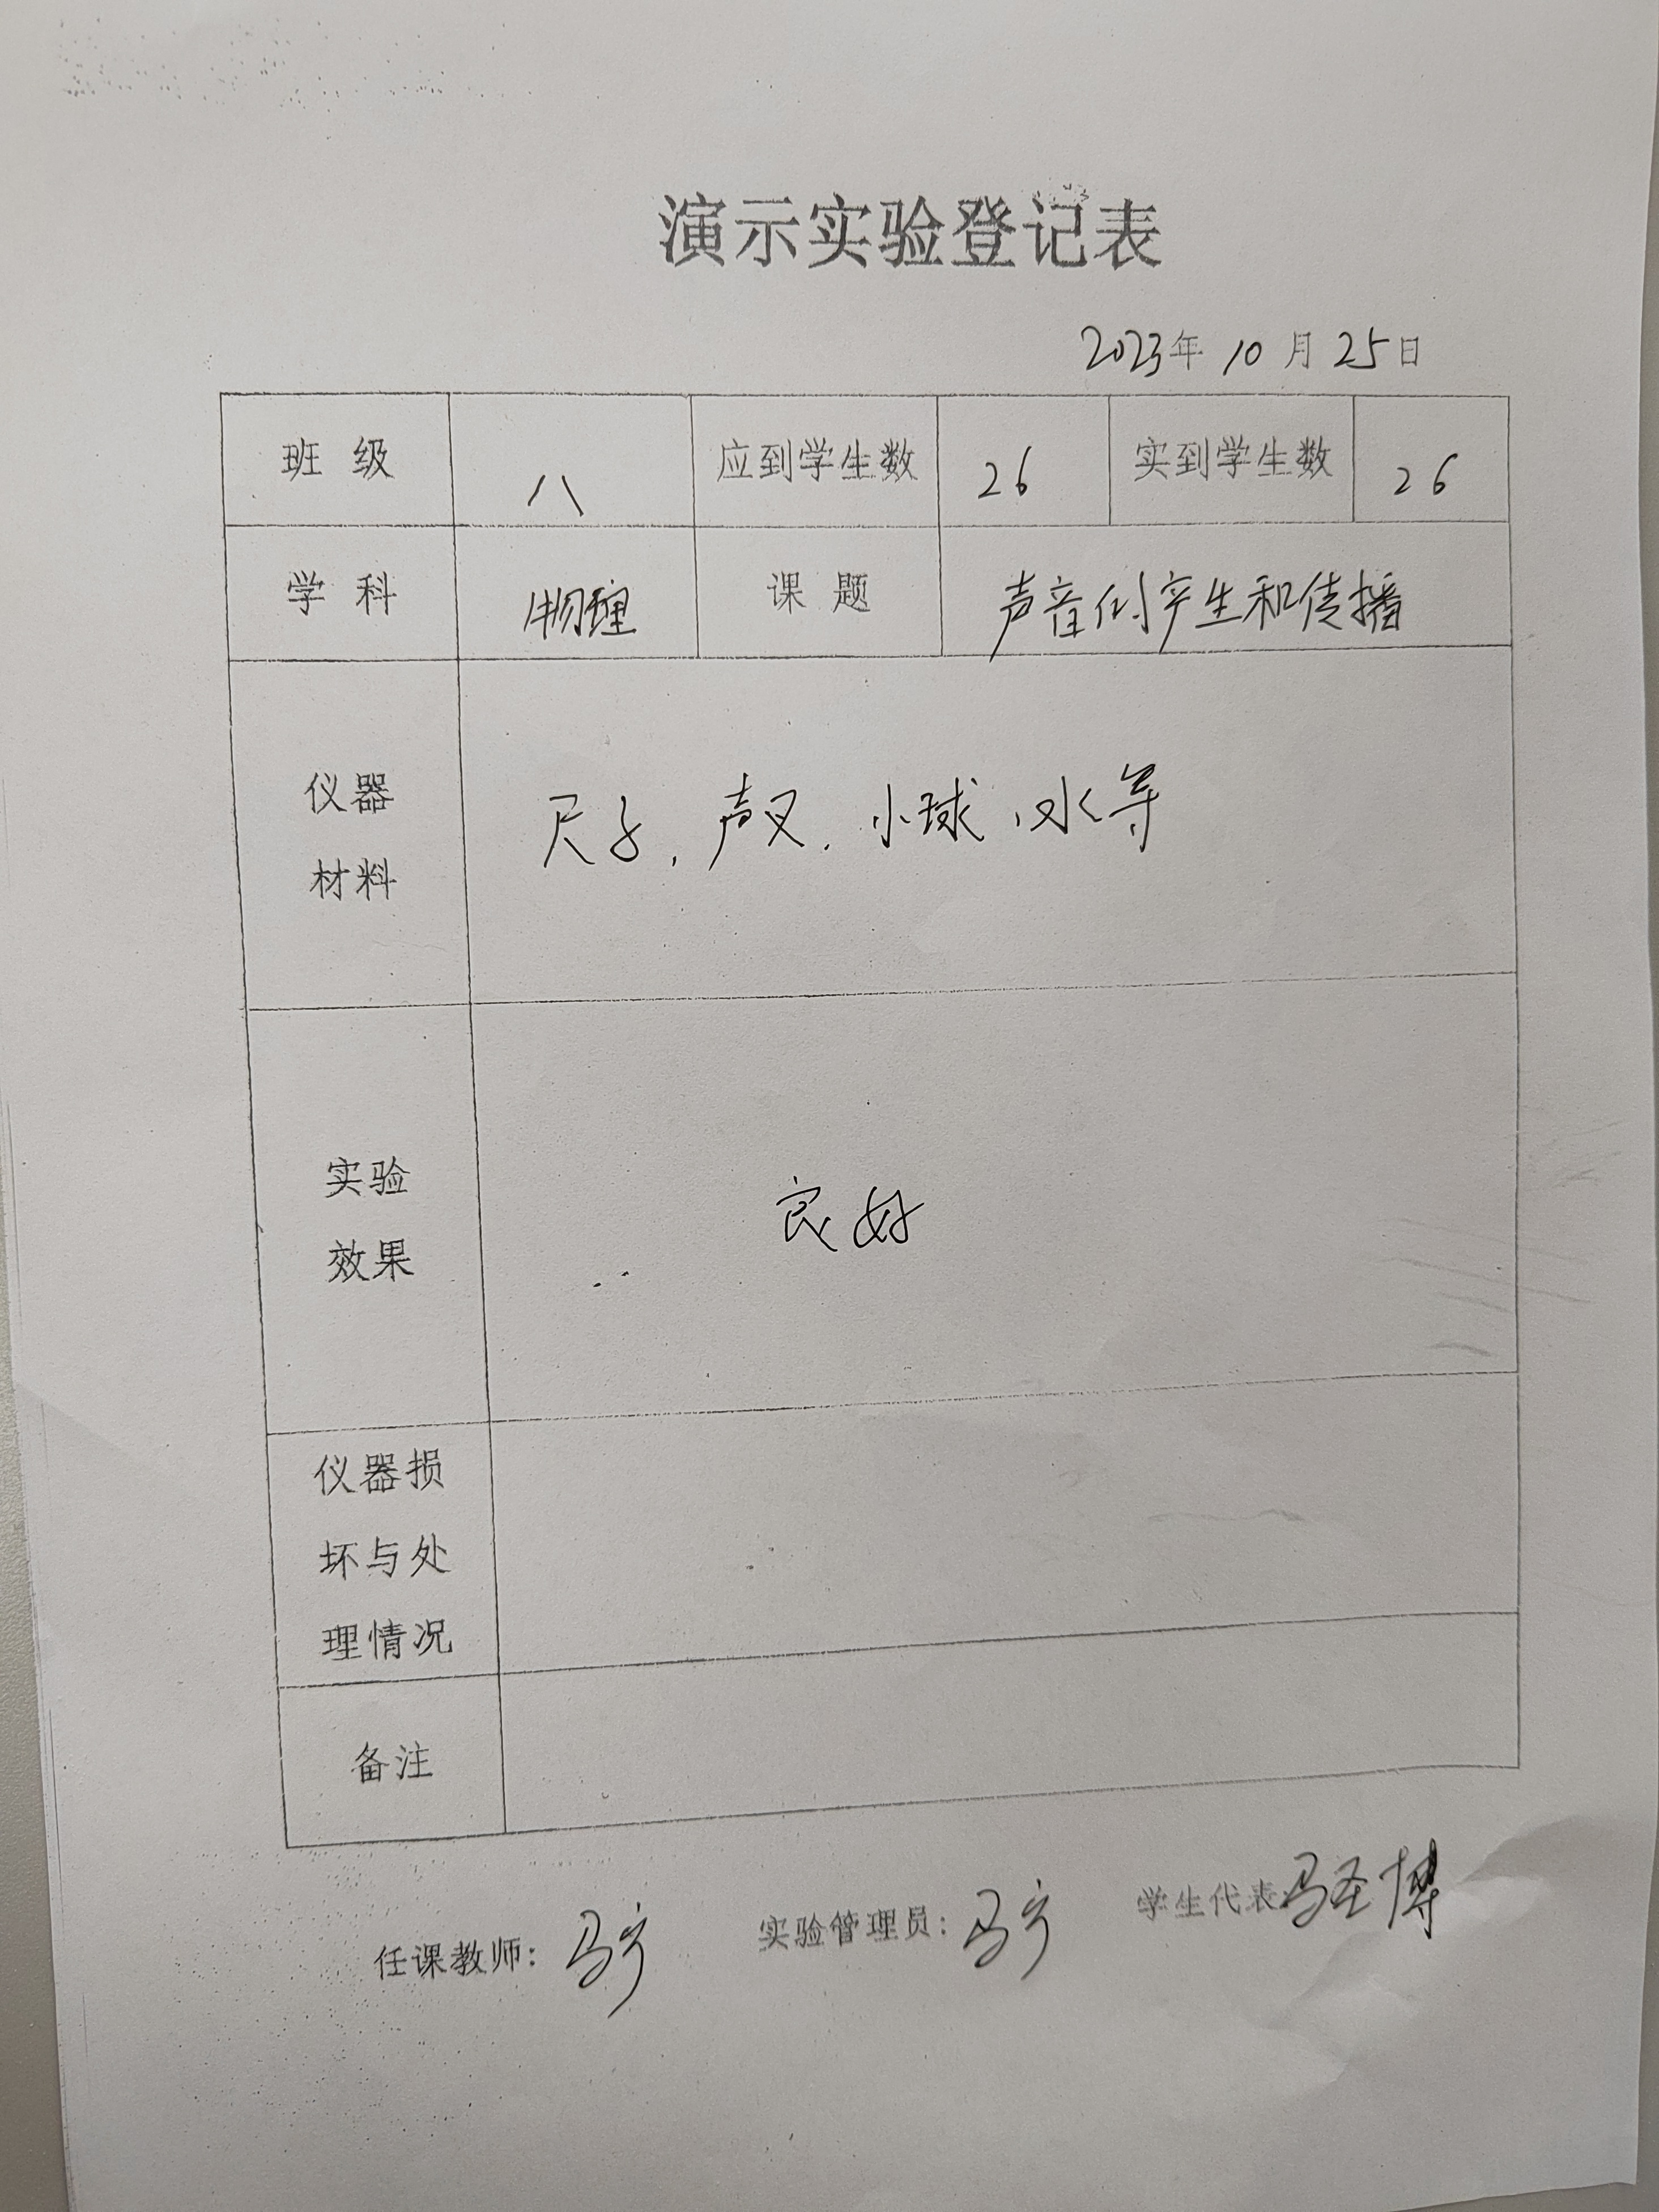 演示实验登记表
2023年 10 月 25日
班 级 八 应到学生数 26 实到学生数 26
学 科 物理 课 题 声音的产生和传播
仪器
材料
尺子、声叉、小球、水等
实验
效果
良好
仪器损
坏与处
理情况
备注
任课教师: 马宁 实验管理员: 马宁 学生代表: 马圣博